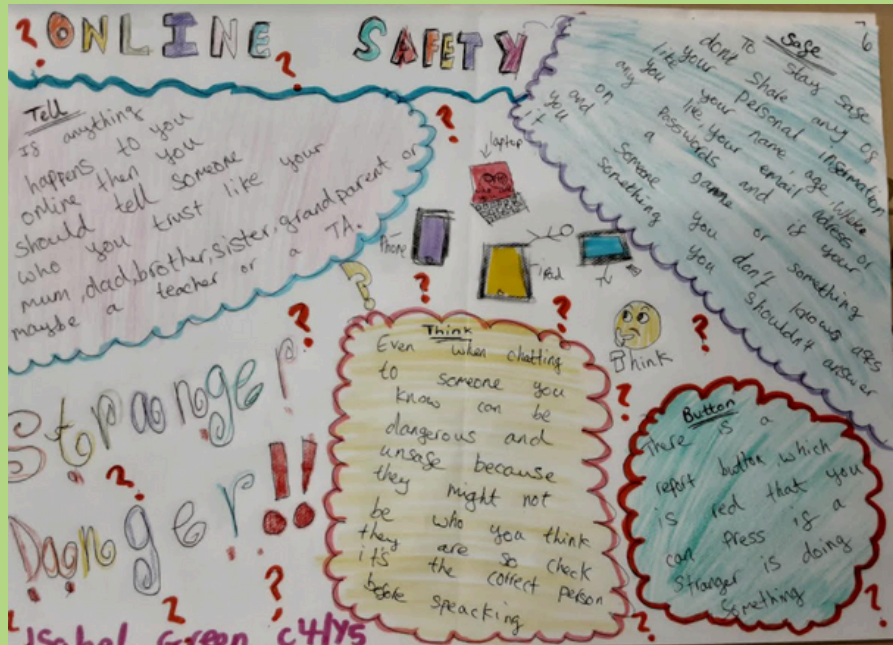 ONLINE SAFETY
6
Tell
If anything
happens to you
online then you
should tell someone
who you trust like your
mum, dad, brother, sister, grandparent or
maybe a teacher or a TA.
Safe
To stay safe
dont share any of
your personal information
like your name, age,
you live, your email adress or
any passwords and if your
on a game or something
and someone you don't knows asks
you something you shouldn't answer
it
laptop
Phone
iPad
TV
Think
Stranger
Danger!!
Think
Even when chatting
to someone you
know can be
dangerous and
unsafe because
they might not
be who you think
they are so check
it's the correct person
before speacking
Button
There is a
report button which
is red that you
can press if a
stranger is doing
something
Isabel Green C4/Y5